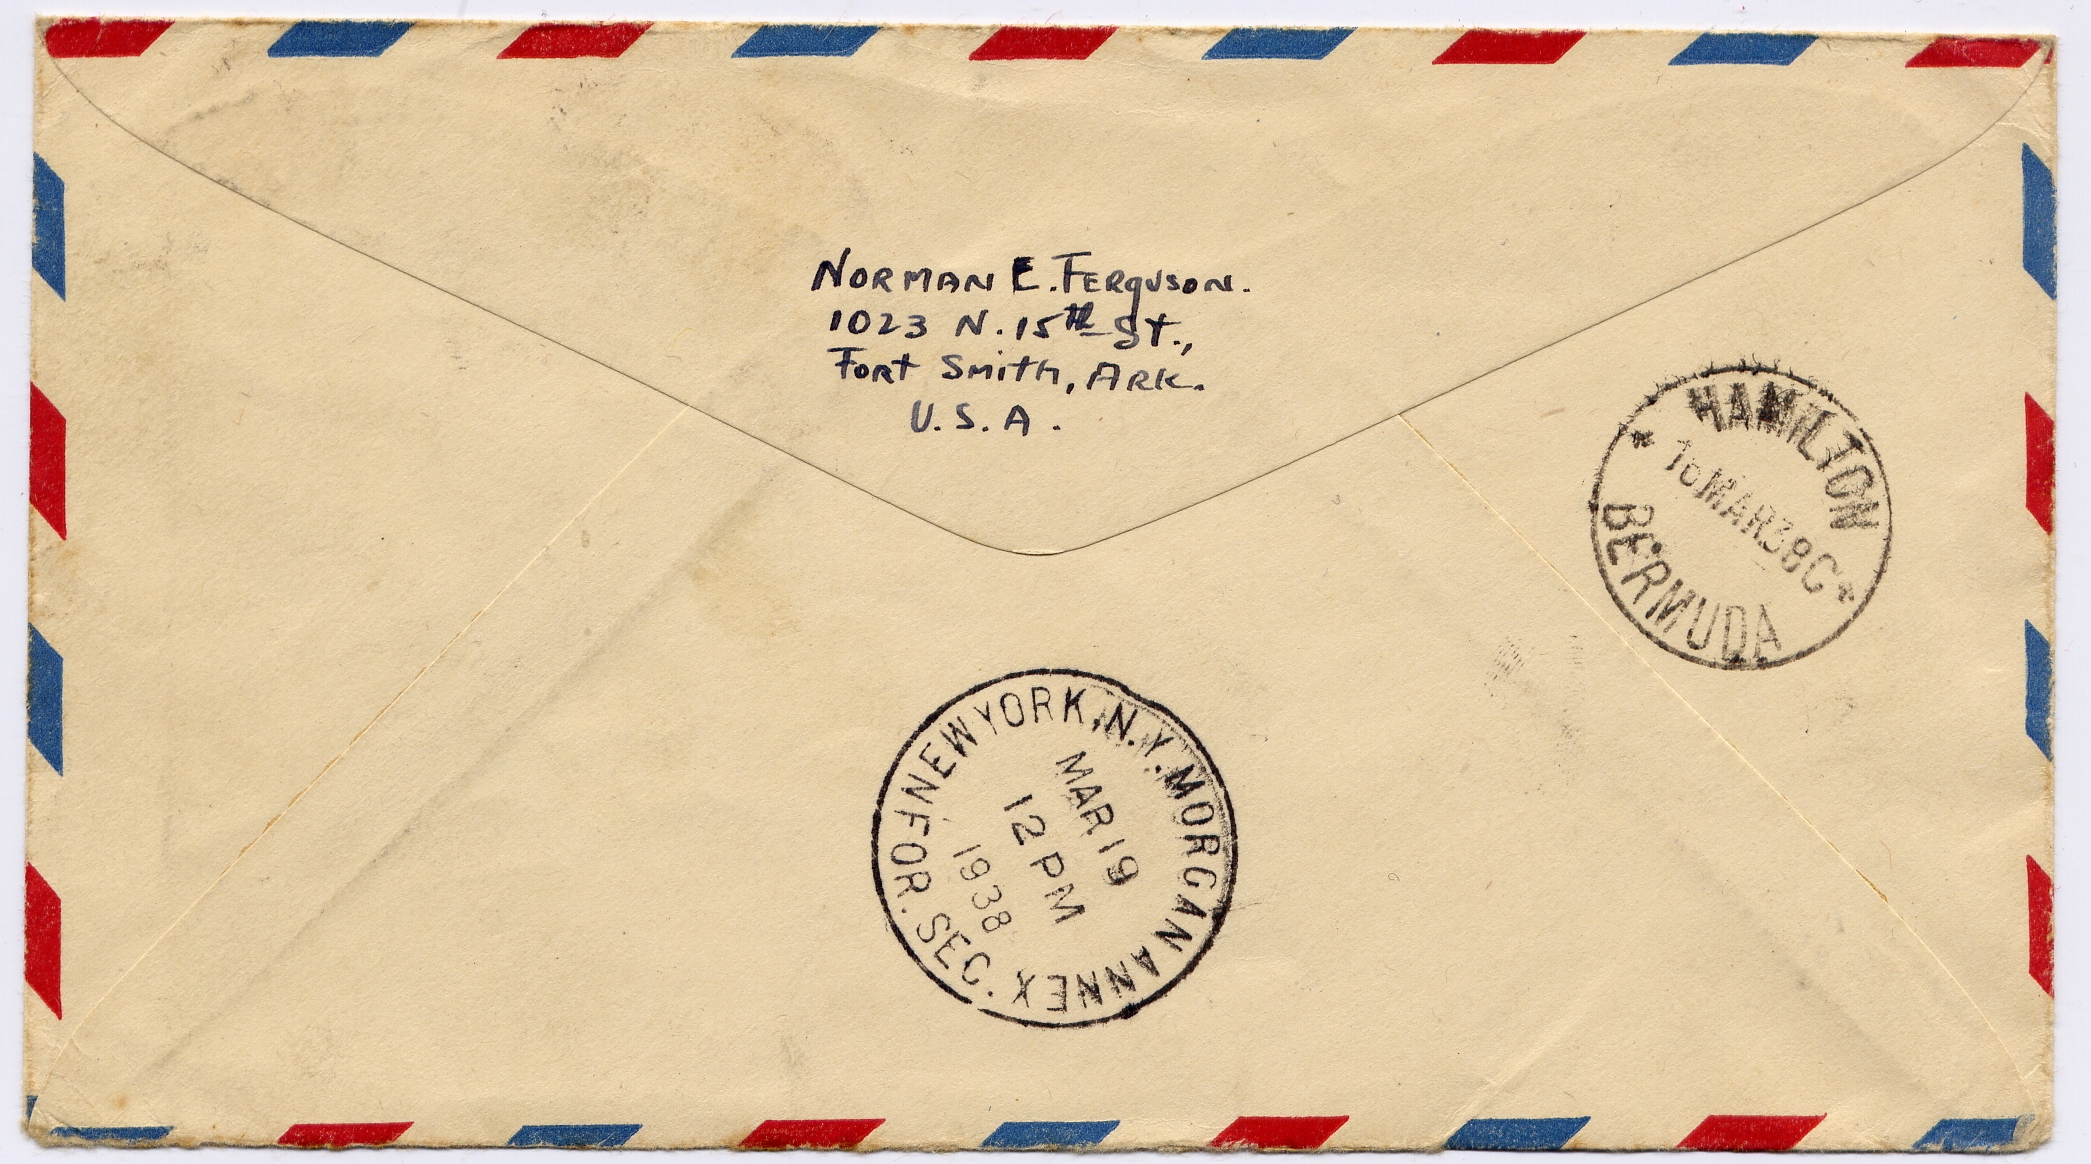 NORMAN E. FERGUSON.
1023 N. 15th St.,
Fort Smith, ARK.
U. S. A.
HAMILTON
MAR 38 C
BERMUDA
NEW YORK, N.Y. MORGAN ANNEX
FOR. SEC.
MAR 19
12 PM
1938